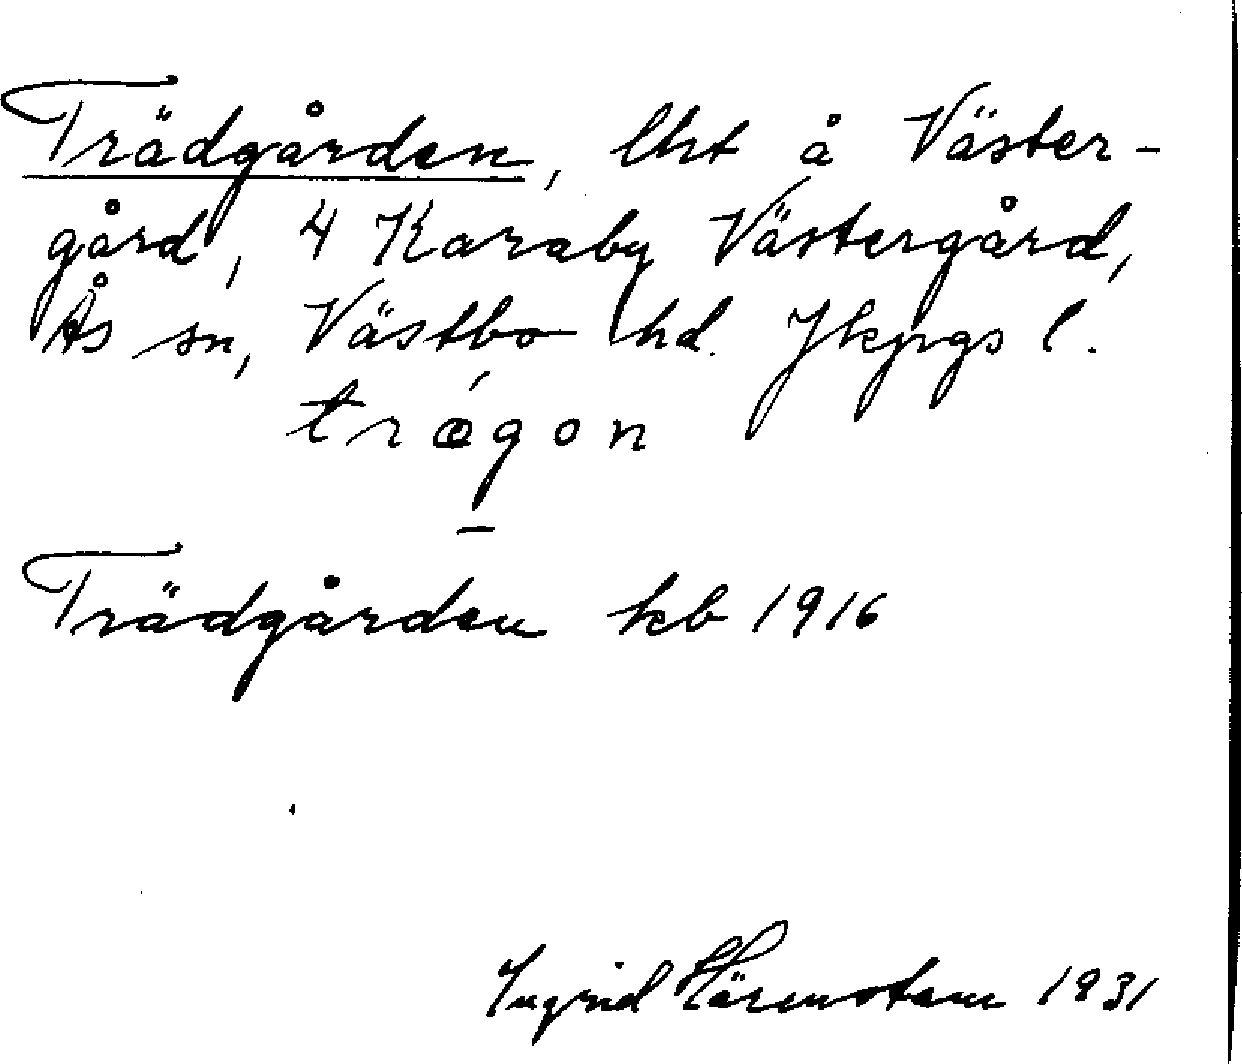 Trädgården, lht å Väster-
gård, 4 Karaby Västergård,
Ås sn, Västbo hd. Jkpgs l.
trǿgon
–
Trädgården kb 1916
Ingrid Härenstam 1931